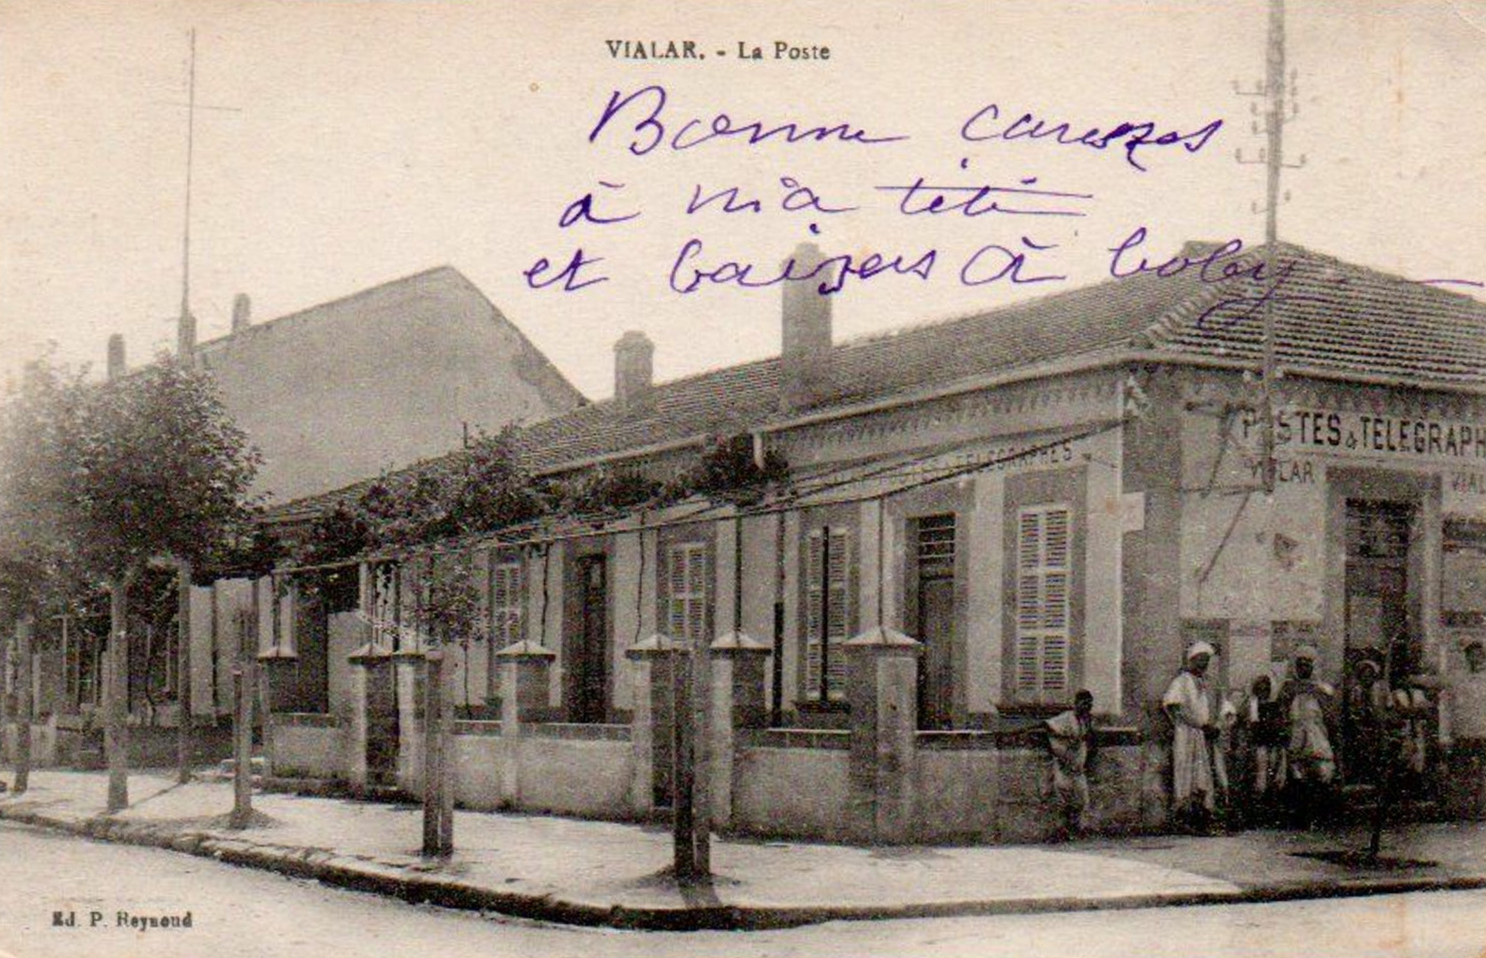 VIALAR. - La Poste
Bonne caresses
à ma titi
et baisers à boby
POSTES & TELEGRAPH
VIALAR
VIAL
POSTES & TELEGRAPHES
Ed. P. Reynaud